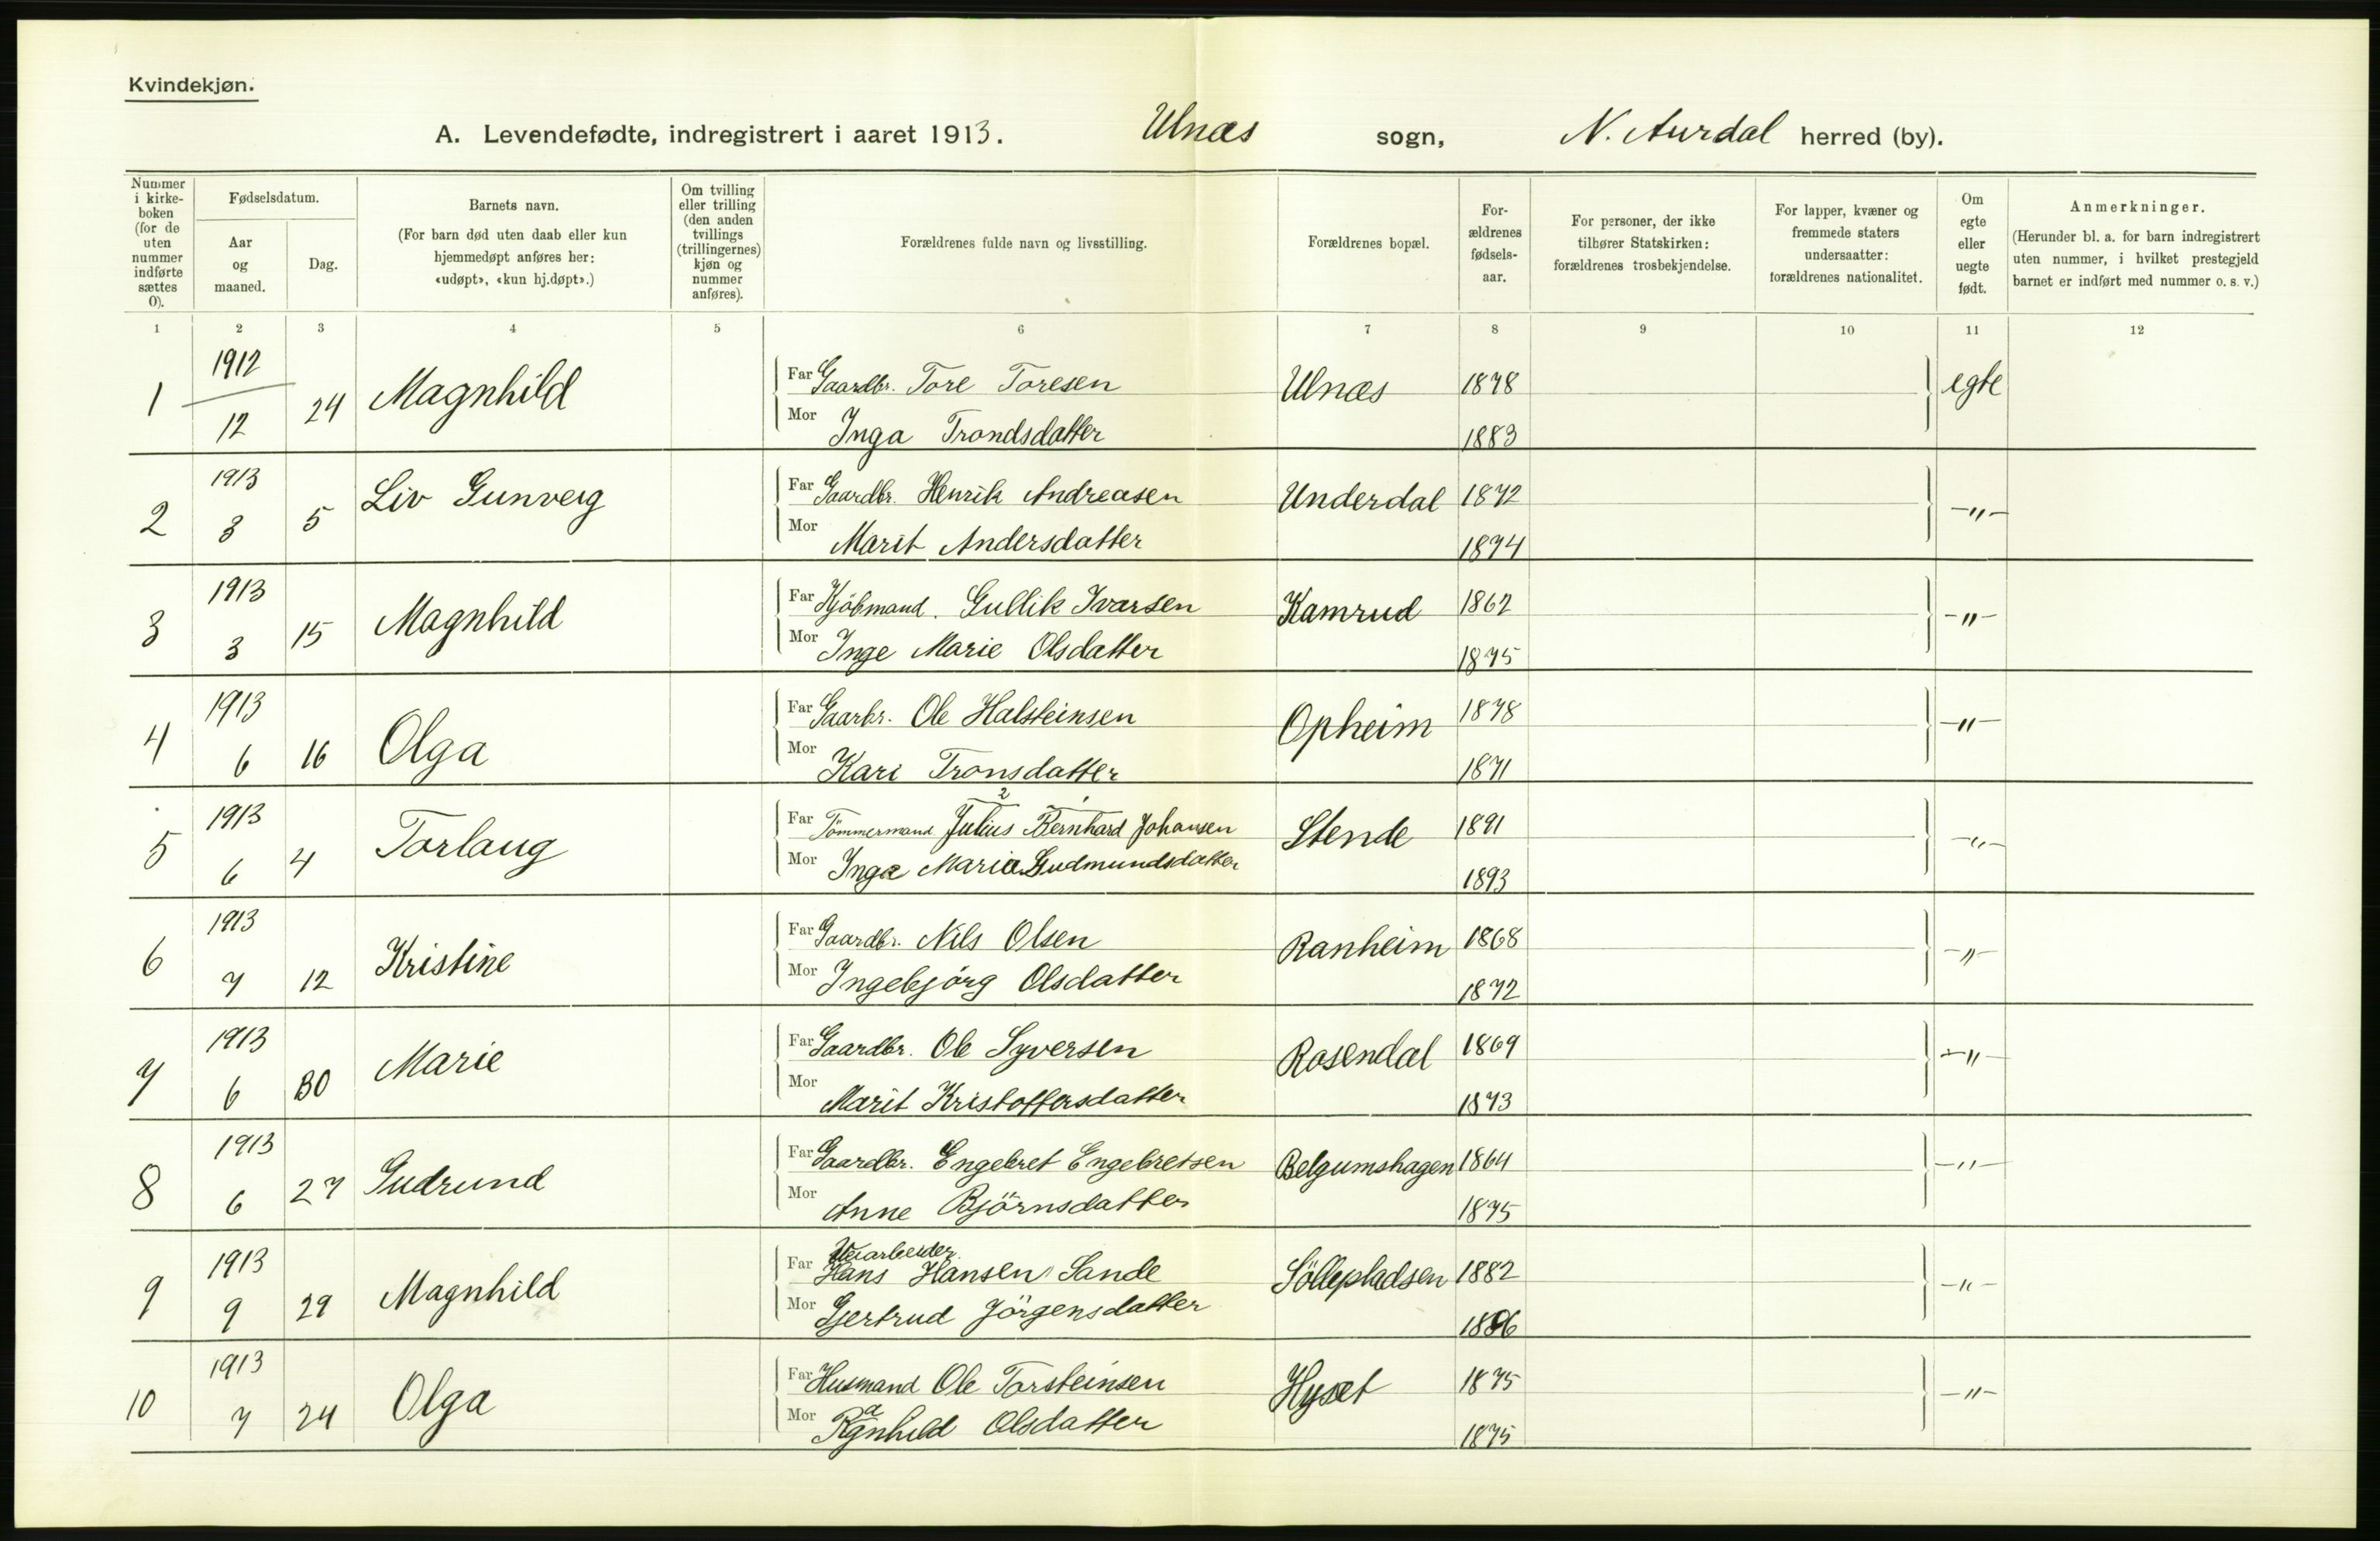 Kvindekjøn.
A. Levendefødte, indregistrert i aaret 1913. Ulnæs sogn, N. Aurdal herred (by).
Nummer i kirke-boken (for de uten nummer indførte sættes 0).
Fødselsdatum.
Aar og maaned.
Dag.
Barnets navn.
(For barn død uten daab eller kun hjemmedøpt anføres her: «udøpt», «kun hj.døpt».)
Om tvilling eller trilling (den anden tvillings (trillingernes) kjøn og nummer anføres).
Forældrenes fulde navn og livsstilling.
Forældrenes bopæl.
For-ældrenes fødsels-aar.
For personer, der ikke tilhører Statskirken: forældrenes trosbekjendelse.
For lapper, kvæner og fremmede staters undersaatter: forældrenes nationalitet.
Om egte eller uegte født.
Anmerkninger.
(Herunder bl. a. for barn indregistrert uten nummer, i hvilket prestegjeld barnet er indført med nummer o. s. v.)
1 2 3 4 5 6 7 8 9 10 11 12
1 1912 12 24 Magnhild Far Gaardbr. Tore Toresen Ulnæs 1878 egte
Mor Inga Trondsdatter 1883
2 1913 3 5 Liv Gunveig Far Gaardbr. Henrik Andreasen Underdal 1872 -"-
Mor Marit Andersdatter 1874
3 1913 3 15 Magnhild Far Kjöbmand. Gullik Ivarsen Kamrud 1862 -"-
Mor Inge Marie Olsdatter 1875
4 1913 6 16 Olga Far Gaarbr. Ole Halsteinsen Opheim 1878 -"-
Mor Kari Tronsdatter 1871
5 1913 6 4 Torlaug Far Tömmermand Julius Bernhard Johansen Stende 1891 -"-
Mor Inga Maria Gudmundsdatter 1893
6 1913 7 12 Kristine Far Gaardbr. Nils Olsen Ranheim 1868 -"-
Mor Ingebjörg Olsdatter 1872
7 1913 6 30 Marie Far Gaardbr. Ole Syversen Rosendal 1869 -"-
Mor Marit Kristoffersdatter 1873
8 1913 6 27 Gudrund Far Gaardbr. Engebret Engebretsen Belgumshagen 1864 -"-
Mor Anne Björnsdatter 1875
9 1913 9 29 Magnhild Far Veiarbeider Hans Hansen Sande Söllepladsen 1882 -"-
Mor Gjertrud Jörgensdatter 1886
10 1913 7 24 Olga Far Husmand Ole Torsteinsen Hyset 1875 -"-
Mor Ragnhild Olsdatter 1875